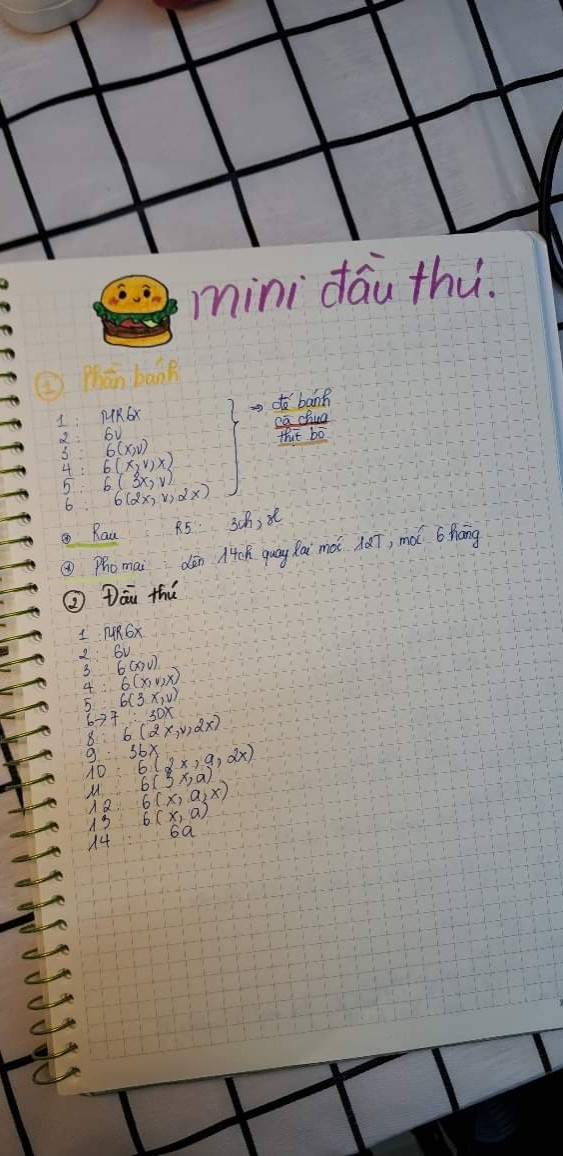 mini đầu thú.
① Phần bánh
1 : MR6x
2 : 6v
3 : 6(x,v)
4 : 6(x,v,x)
5 : 6(3x,v)
6 : 6(2x,v,2x)
=> đế bánh
cà chua
thịt bò
Rau : R5 : 3ch, sl
Pho mai : lên 14ch quay lại móc 12T, móc 6 hàng
② Đầu thú
1 : MR6x
2 : 6v
3 : 6(x,v)
4 : 6(x,v,x)
5 : 6(3x,v)
6→7 : 30x
8 : 6(2x,v,2x)
9 : 36x
10 : 6(2x,a,2x)
11 : 6(3x,a)
12 : 6(x,a,x)
13 : 6(x,a)
14 : 6a